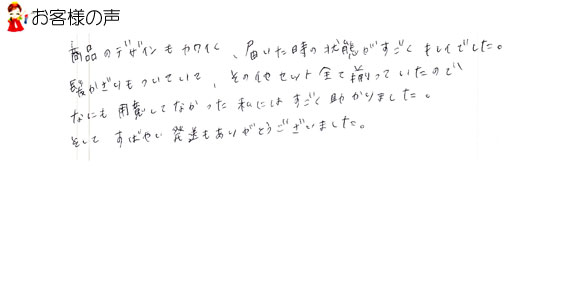 お客様の声
商品のデザインもカワイく、届いた時の状態がすごくキレイでした。
髪かざりもついていて、その他セット全て揃っていたので
なにも用意してなかった私にはすごく助かりました。
そして すばやい発送もありがとうございました。